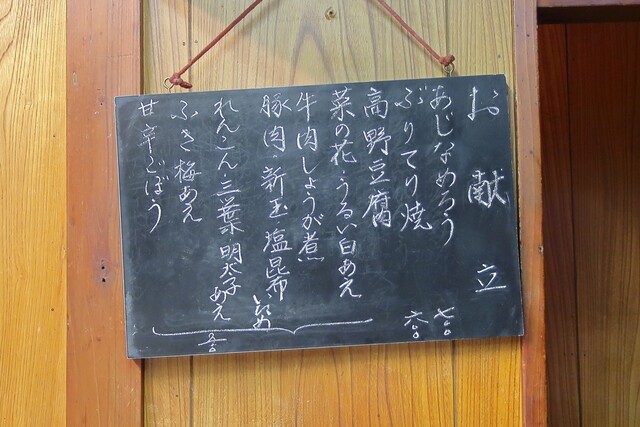 お献立
あじなめろう 七〇〇
ぶりてり焼 六〇〇
高野豆腐
菜の花・うるい白あえ
牛肉しょうが煮
豚肉・新玉・塩昆布いため
れんこん・三葉明太子あえ
ふき梅あえ
甘辛ごぼう
五〇〇